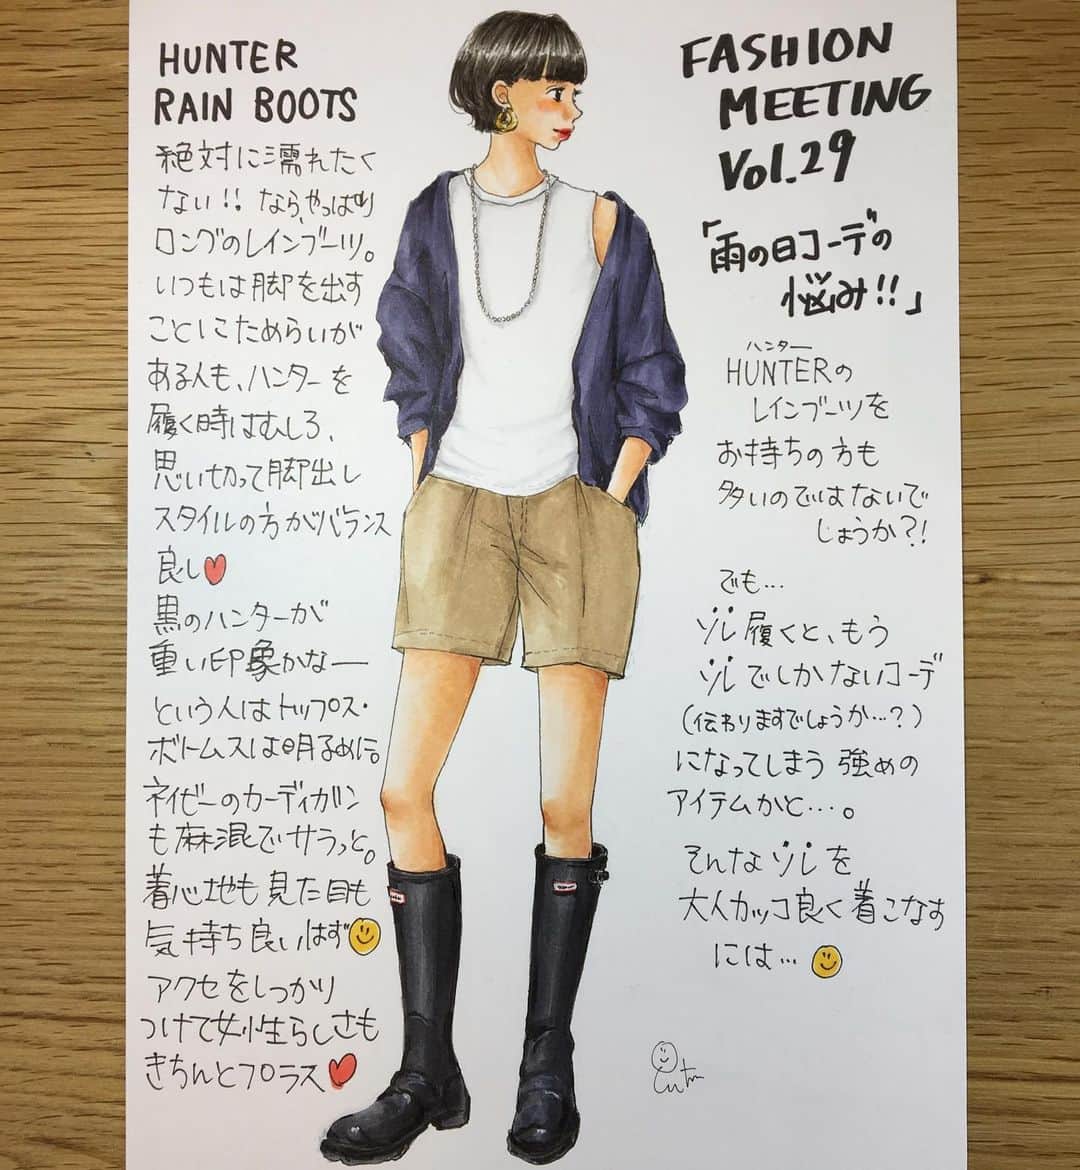 HUNTER
RAIN BOOTS
絶対に濡れたく
ない!! なら、やっぱり
ロングのレインブーツ。
いつもは脚を出す
ことにためらいが
ある人も、ハンターを
履く時はむしろ、
思い切って脚出し
スタイルの方がバランス
良し
黒のハンターが
重い印象かなー
という人はトップス・
ボトムスは明るめに。
ネイビーのカーディガン
も麻混でサラっと。
着心地も見た目も
気持ち良いはず
アクセをしっかり
つけて女性らしさも
きちんとプラス
FASHION
MEETING
Vol.29
「雨の日コーデの
悩み!!」
ハンター
HUNTERの
レインブーツを
お持ちの方も
多いのではないで
しょうか?!
でも…
ソレ履くと、もう
ソレでしかないコーデ
(伝わりますでしょうか…?)
になってしまう強めの
アイテムかと…。
そんなソレを
大人カッコ良く着こなす
には…